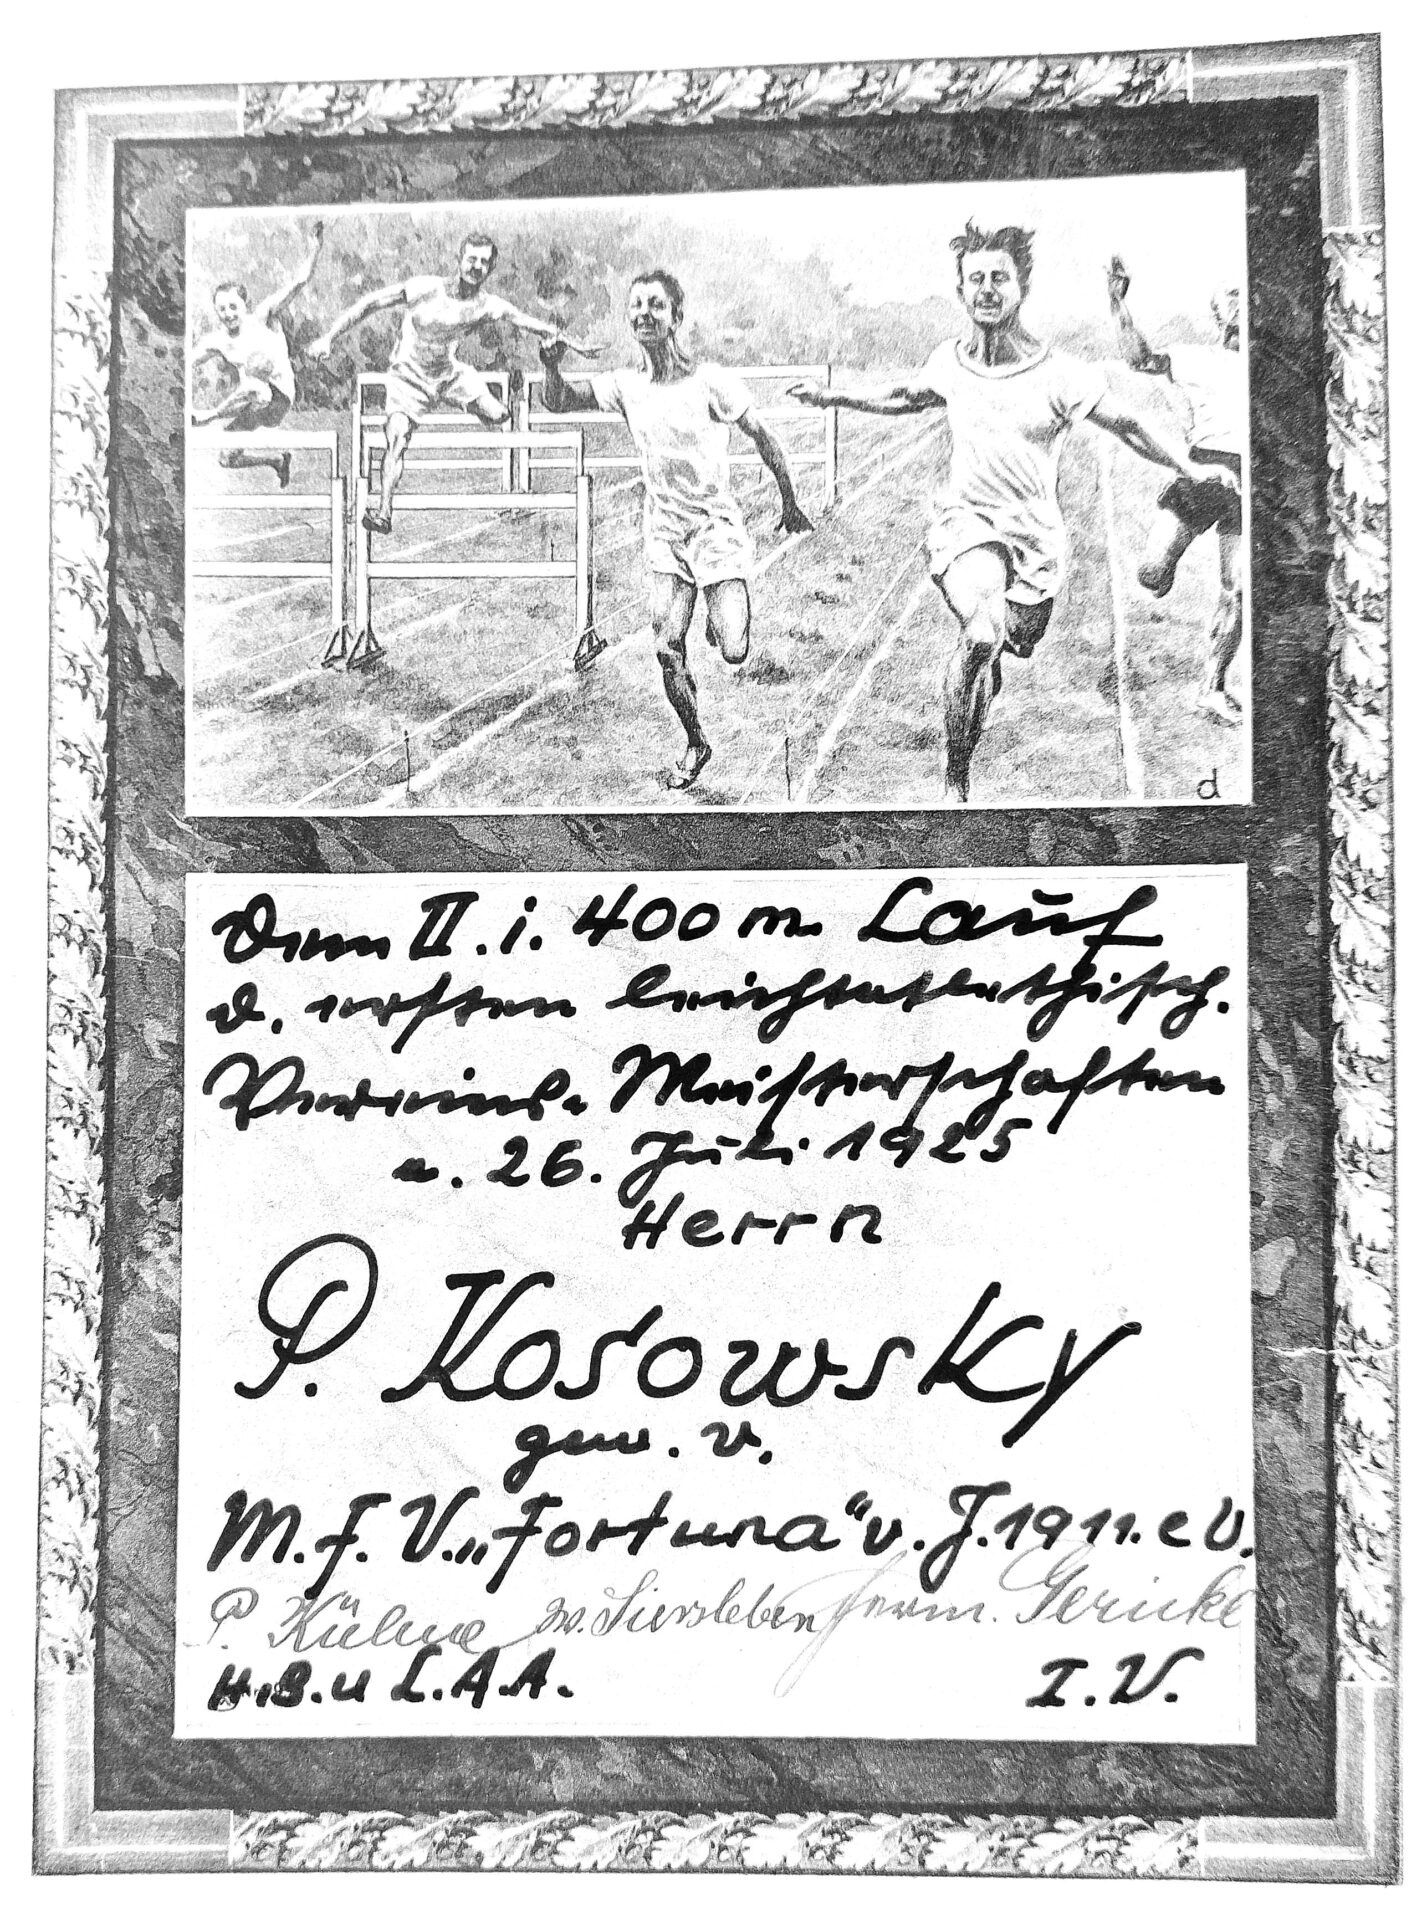 d
Dem II. i. 400 m. Lauf
d. ersten leichtatlethisch.
Vereins-Meisterschaften
a. 26. Juli 1925
Herrn
P. Kosowsky
gew. v.
M. F. V. „Fortuna“ v. J. 1911. e V.
P. Kühne W. Siersleben Herm. Gericke
H. B. u L. A. A. I. V.